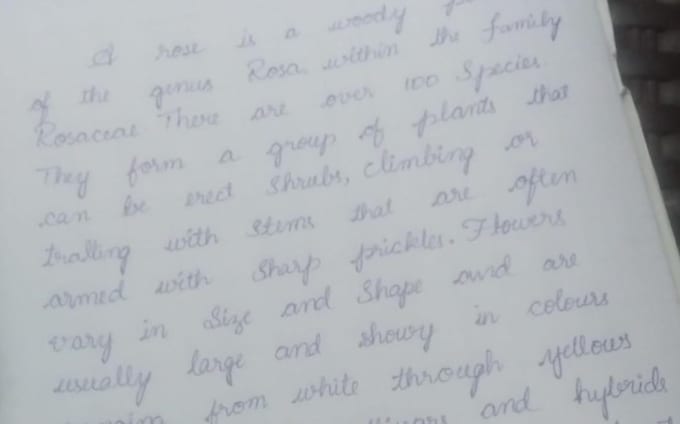 A rose is a woody
of the genus Rosa within the family
Rosaceae There are over 100 Species.
They form a group of plants that
can be erect Shrubs, climbing or
tralling with stems that are often
armed with Sharp prickles. Flowers
vary in Size and Shape and are
usually large and showy in colours
from white through yellows
and hybrids